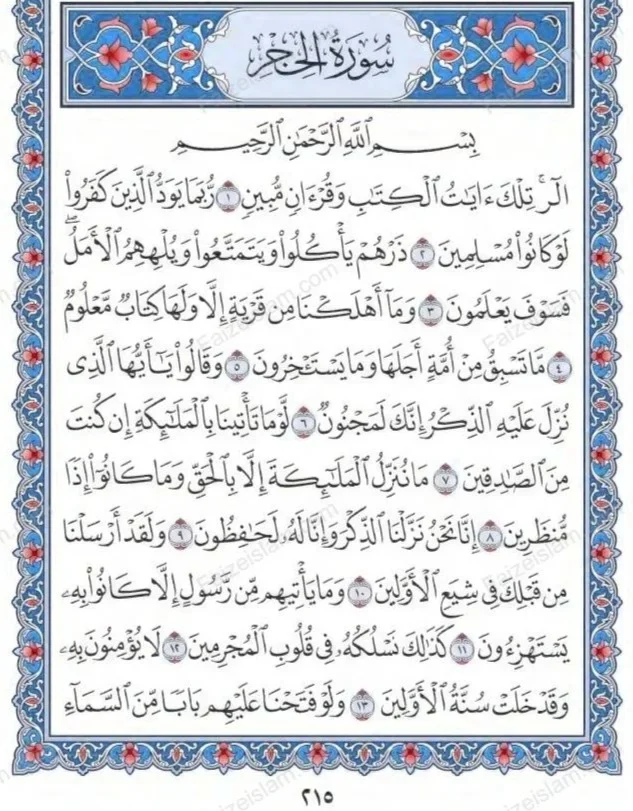 سُورَةُ الحِجْرِ
بِسْمِ ٱللَّهِ ٱلرَّحْمَٰنِ ٱلرَّحِيمِ
الٓرۚ تِلْكَ ءَايَٰتُ ٱلْكِتَٰبِ وَقُرْءَانٖ مُّبِينٖ ١ رُّبَمَا يَوَدُّ ٱلَّذِينَ كَفَرُوا۟
لَوْ كَانُوا۟ مُسْلِمِينَ ٢ ذَرْهُمْ يَأْكُلُوا۟ وَيَتَمَتَّعُوا۟ وَيُلْهِهِمُ ٱلْأَمَلُۖ
فَسَوْفَ يَعْلَمُونَ ٣ وَمَآ أَهْلَكْنَا مِن قَرْيَةٍ إِلَّا وَلَهَا كِتَابٞ مَّعْلُومٞ
٤ مَّا تَسْبِقُ مِنْ أُمَّةٍ أَجَلَهَا وَمَا يَسْتَـْٔخِرُونَ ٥ وَقَالُوا۟ يَٰٓأَيُّهَا ٱلَّذِى
نُزِّلَ عَلَيْهِ ٱلذِّكْرُ إِنَّكَ لَمَجْنُونٞ ٦ لَّوْ مَا تَأْتِينَا بِٱلْمَلَٰٓئِكَةِ إِن كُنتَ
مِنَ ٱلصَّٰدِقِينَ ٧ مَا نُنَزِّلُ ٱلْمَلَٰٓئِكَةَ إِلَّا بِٱلْحَقِّ وَمَا كَانُوٓا۟ إِذٗا
مُّنظَرِينَ ٨ إِنَّا نَحْنُ نَزَّلْنَا ٱلذِّكْرَ وَإِنَّا لَهُۥ لَحَٰفِظُونَ ٩ وَلَقَدْ أَرْسَلْنَا
مِن قَبْلِكَ فِى شِيَعِ ٱلْأَوَّلِينَ ١٠ وَمَا يَأْتِيهِم مِّن رَّسُولٍ إِلَّا كَانُوا۟ بِهِۦ
يَسْتَهْزِءُونَ ١١ كَذَٰلِكَ نَسْلُكُهُۥ فِى قُلُوبِ ٱلْمُجْرِمِينَ ١٢ لَا يُؤْمِنُونَ بِهِۦ
وَقَدْ خَلَتْ سُنَّةُ ٱلْأَوَّلِينَ ١٣ وَلَوْ فَتَحْنَا عَلَيْهِم بَابٗا مِّنَ ٱلسَّمَآءِ
٢١٥
Faizeislam.com